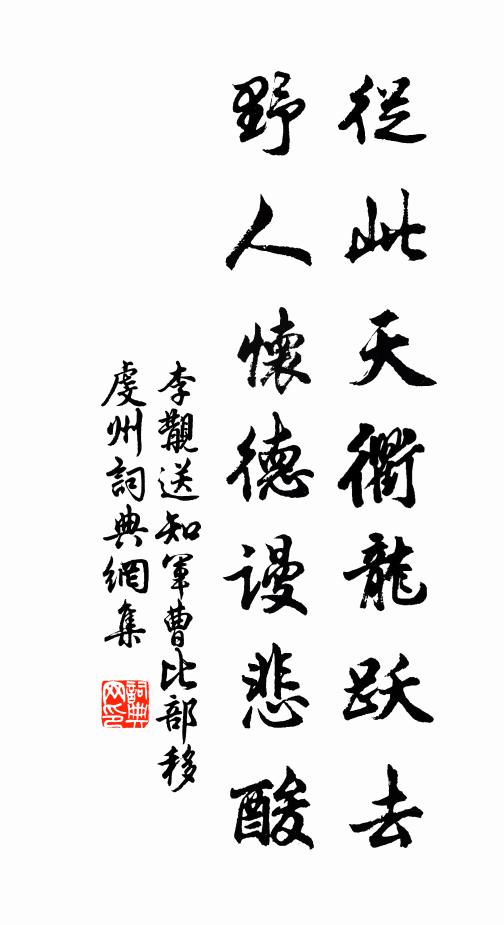 從此天衢龍跃去
野人懷德谩悲酸
李觀送知軍曹比部移
虔州詞典網集
詞典
网印